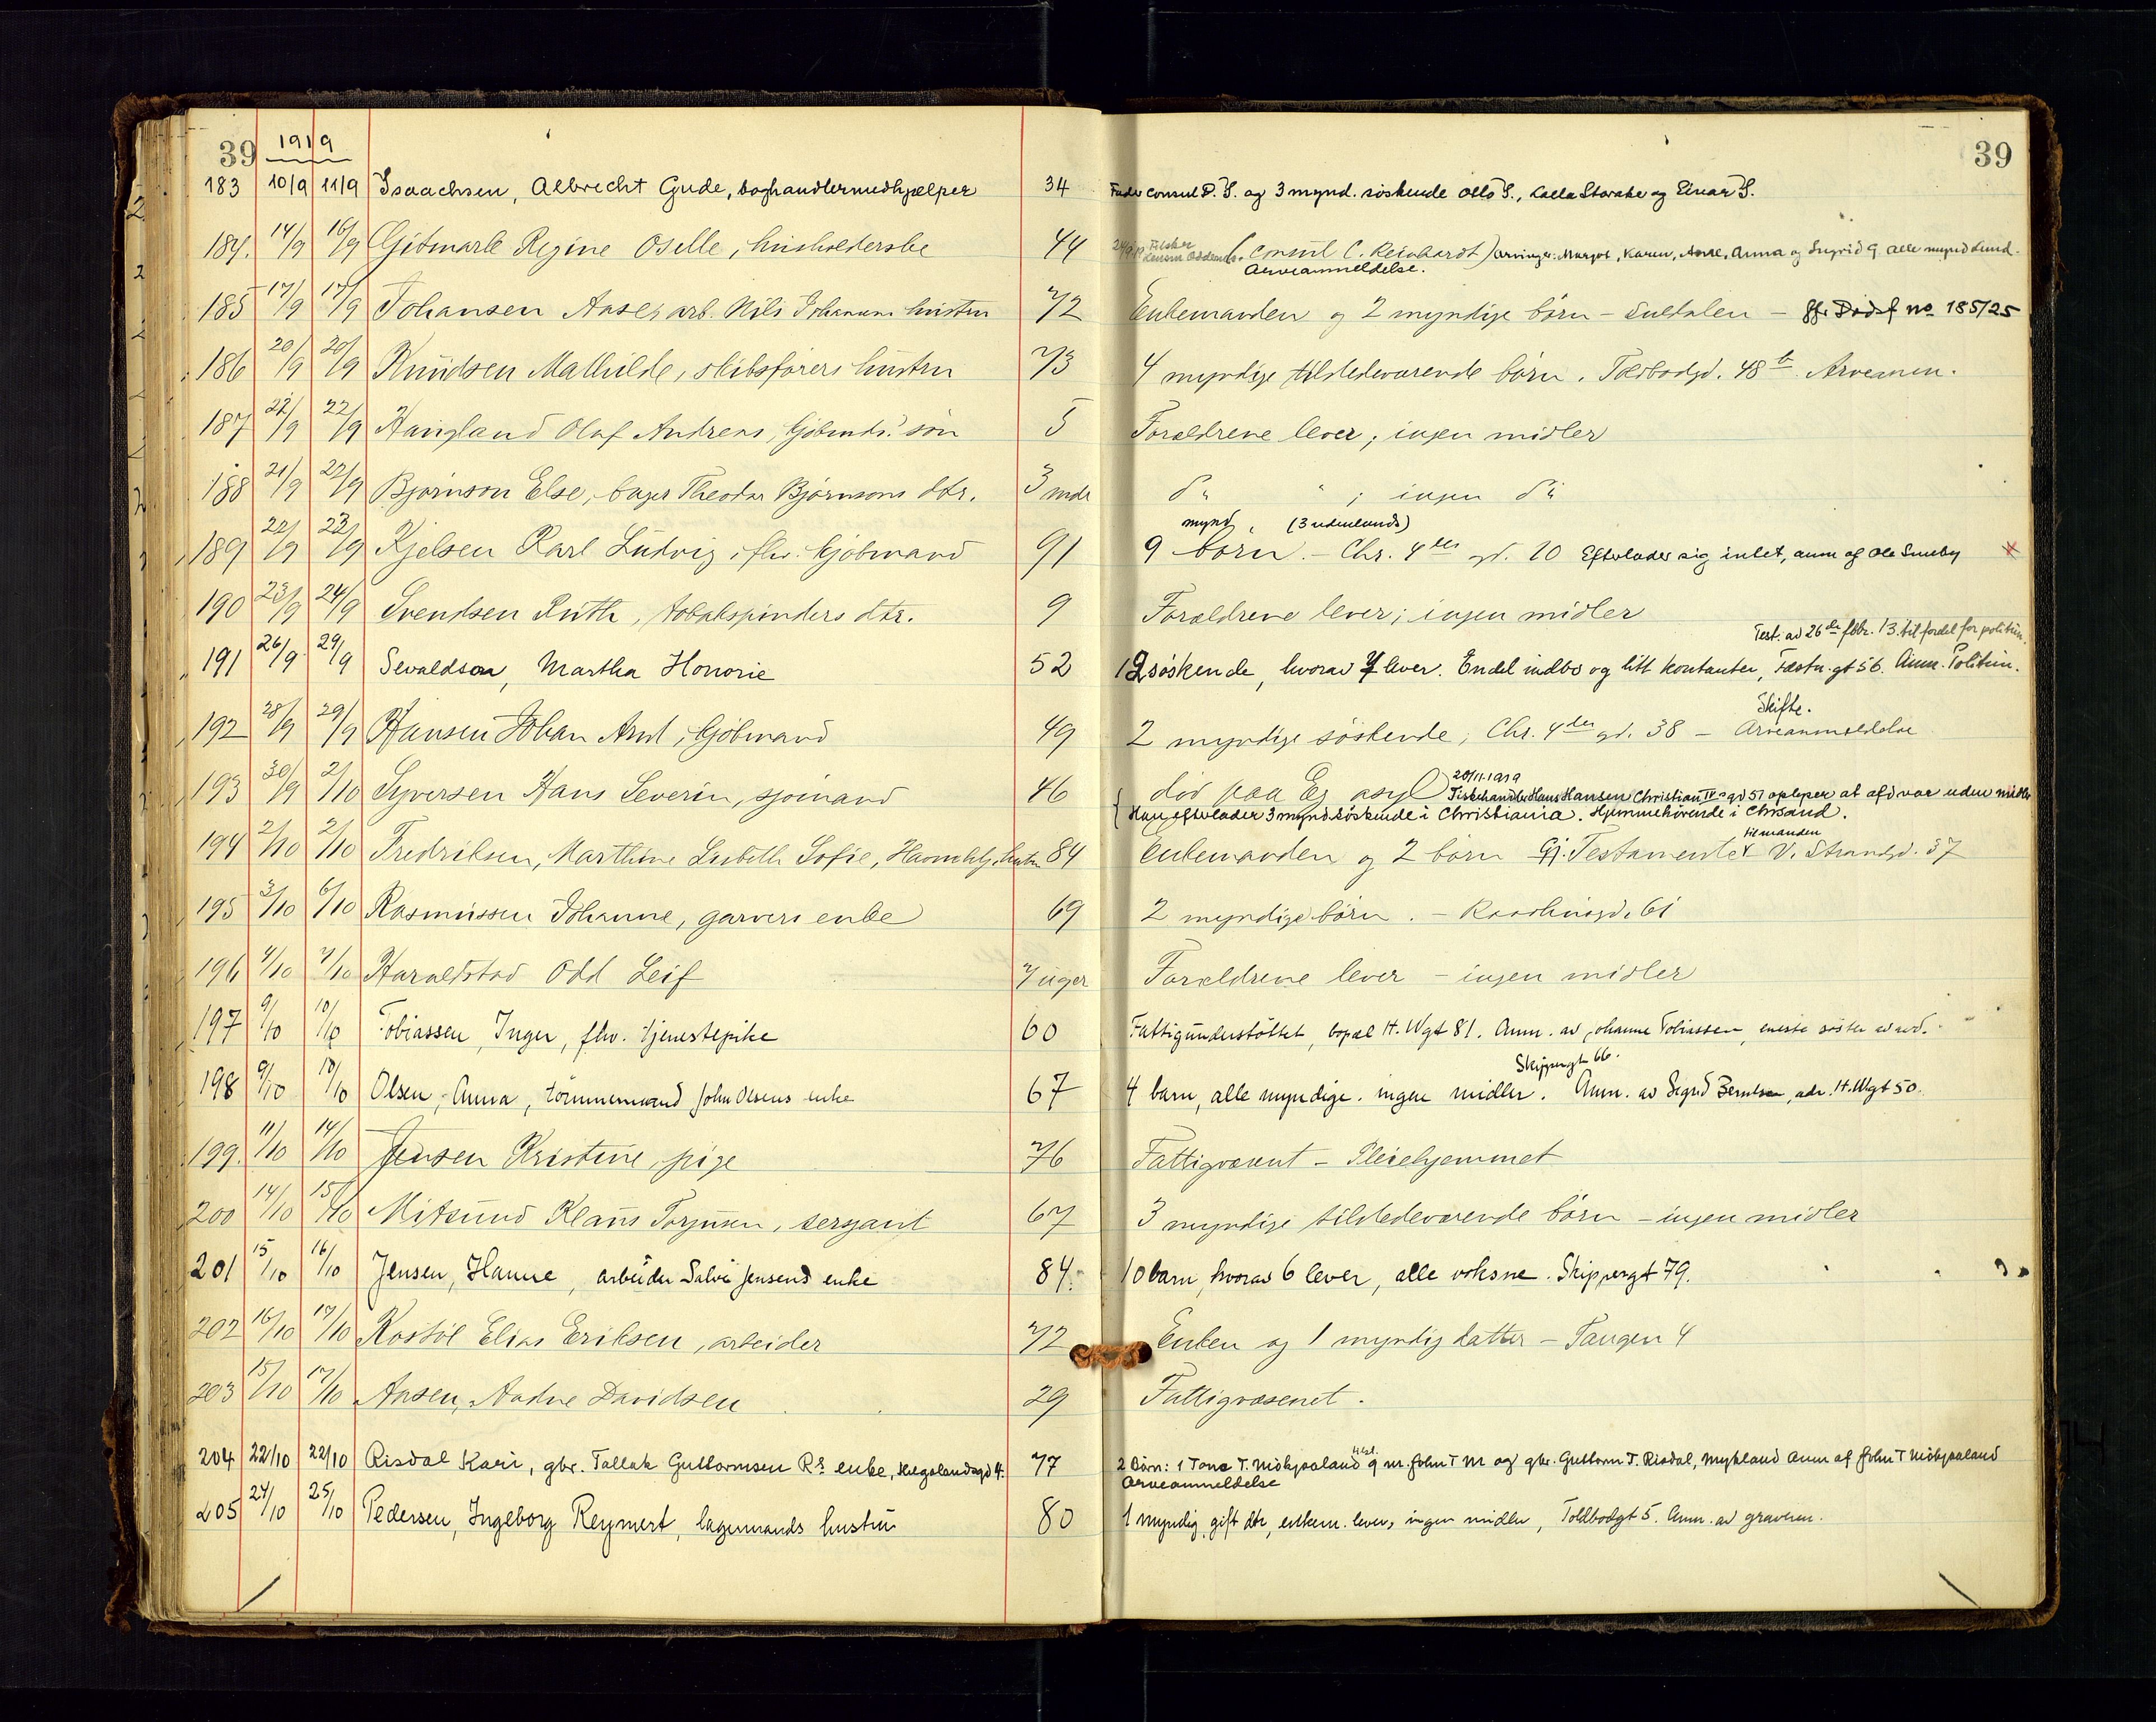 39 1919 39
183 10/9 11/9 Isaachsen, Albrecht Gude, boghandlermedhjælper 34 Fader consul D. I. og 3 mynd. søskende Otto I., Lalla Starake og Einar I.
184. 14/9 16/9 Gitmark Regine Oselle, husholderske 44 (Consul C. Reinhardt) arvinger: Margot, Karen, Anna og Ingrid G alle mynd Lund.
Arveanmeldelse.
185 17/9 17/9 Johansen Aase, arb. Nils Johansens hustru 72 Enkemanden og 2 myndige børn - Suldalen - Jfr Dødsf no 185/25
186 20/9 20/9 Knudsen Mathilde, skibsførers hustru 73 4 myndige tilstedeværende børn. Toldbodgd. 48 b Arveanm.
187 22/9 22/9 Haugland Olaf Andreas, kjøbmds. søn 5 Forældrene lever; ingen midler
188 21/9 22/9 Bjørnson Else, bager Theodor Bjørnsons dtr. 3 mdr do " ; ingen do
mynd. (3 udenlands)
189 22/9 23/9 Kjelsen Karl Ludvig, fhv. kjøbmand 91 9 børn. - Chr. 4des gd. 10 Efterlader sig intet, anm af Ole Smeby
190 23/9 24/9 Svendsen Ruth, tobakspinders dtr. 9 Forældrene lever; ingen midler
Test. av 26de febr. 13. til fordel for politim.
191 26/9 29/9 Sevaldson, Martha Honorie 52 12 søskende, hvorav 7 lever. Endel indbo og litt kontanter, Fæstn. gt 56. Anm. Politim.
Skifte.
192 28/9 29/9 Hansen Johan Arnt, kjøbmand 49 2 myndige søskende, Chr. 4des gd. 38 - Arveanmeldelse
193 30/9 2/10 Syversen Hans Severin, sjømand 46 død paa Eg asyl 20/11-1919 Fiskehandler Hans Hansen Christian IVs gd 57 oplyser at afd var uden midler
Han efterlader 3 mynd søskende i Christiania. Hjemmehørende i Chrsand.
til manden
194 2/10 2/10 Fredriksen, Marthine Lisbeth Sofie, 84 Enkemanden og 2 børn Gj. Testamente V. Strandgd. 37
195 3/10 6/10 Rasmussen Johanne, garvers enke 69 2 myndige børn. - Raadhusgd. 61
196 4/10 7/10 Haraldstad Odd Leif 7 uger Forældrene lever - ingen midler
197 9/10 10/10 Tobiassen, Inger, fhv. tjenestepike 60 Fattigunderstøttet, bopæl H. Wgt 81. Anm. av Johanne Tobiassen, eneste søster av avd.
Skippergt 66.
198 9/10 10/10 Olsen, Anna, tømmermand John Olsens enke 67 4 barn, alle myndige. ingen midler. Anm. av Sigrid Berntsen, adr. H. Wgt 50.
199. 11/10 14/10 Jensen Kristine, pige 76 Fattigvæsent - Pleiehjemmet
200 14/10 15/10 Mitsund Klaus Torjusen, sergant 67 3 myndige tilstedeværende børn - ingen midler
201 15/10 16/10 Jensen, Hanne, arbeider Salve Jensens enke 84. 10 barn, hvorav 6 lever, alle voksne. Skippergt 79.
202 16/10 17/10 Kostøl Elias Eriksen, arbeider 72 Enken og 1 myndig datter - Tangen 4
203 15/10 17/10 Aasen, Aadne Davidsen 29 Fattigvæsenet.
204 22/10 22/10 Risdal Kari, gbr. Tallak Guttormsen Rs enke, Helgelandsgd 4. 77 2 Børn: 1 Tone T. Møkjaaland g m. John T M og gbr. Guttorm T. Risdal, Mykland Anm af John T Møkjaaland
Arveanmeldelse
205 24/10 25/10 Pedersen, Ingeborg Reymert, lagermands hustru 80 1 myndig, gift dtr, enkem. lever, ingen midler, Toldbodgt 5. Anm. av graveren.